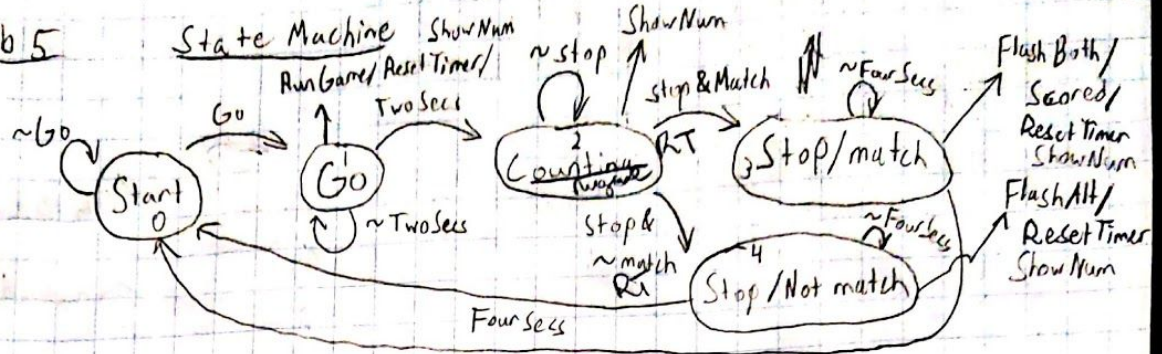 b 5
State Machine
ShowNum
RunGame/ResetTimer/
~Go
Go
TwoSecs
~stop
ShowNum
stop&Match
RT
~FourSecs
Flash Both/
Scored/
Reset Timer
ShowNum
Start
0
1
Go
~TwoSecs
2
Counting
3
Stop/match
Stop&
~match
RT
4
Stop/Not match
~FourSecs
FlashAlt/
Reset Timer
ShowNum
Four secs